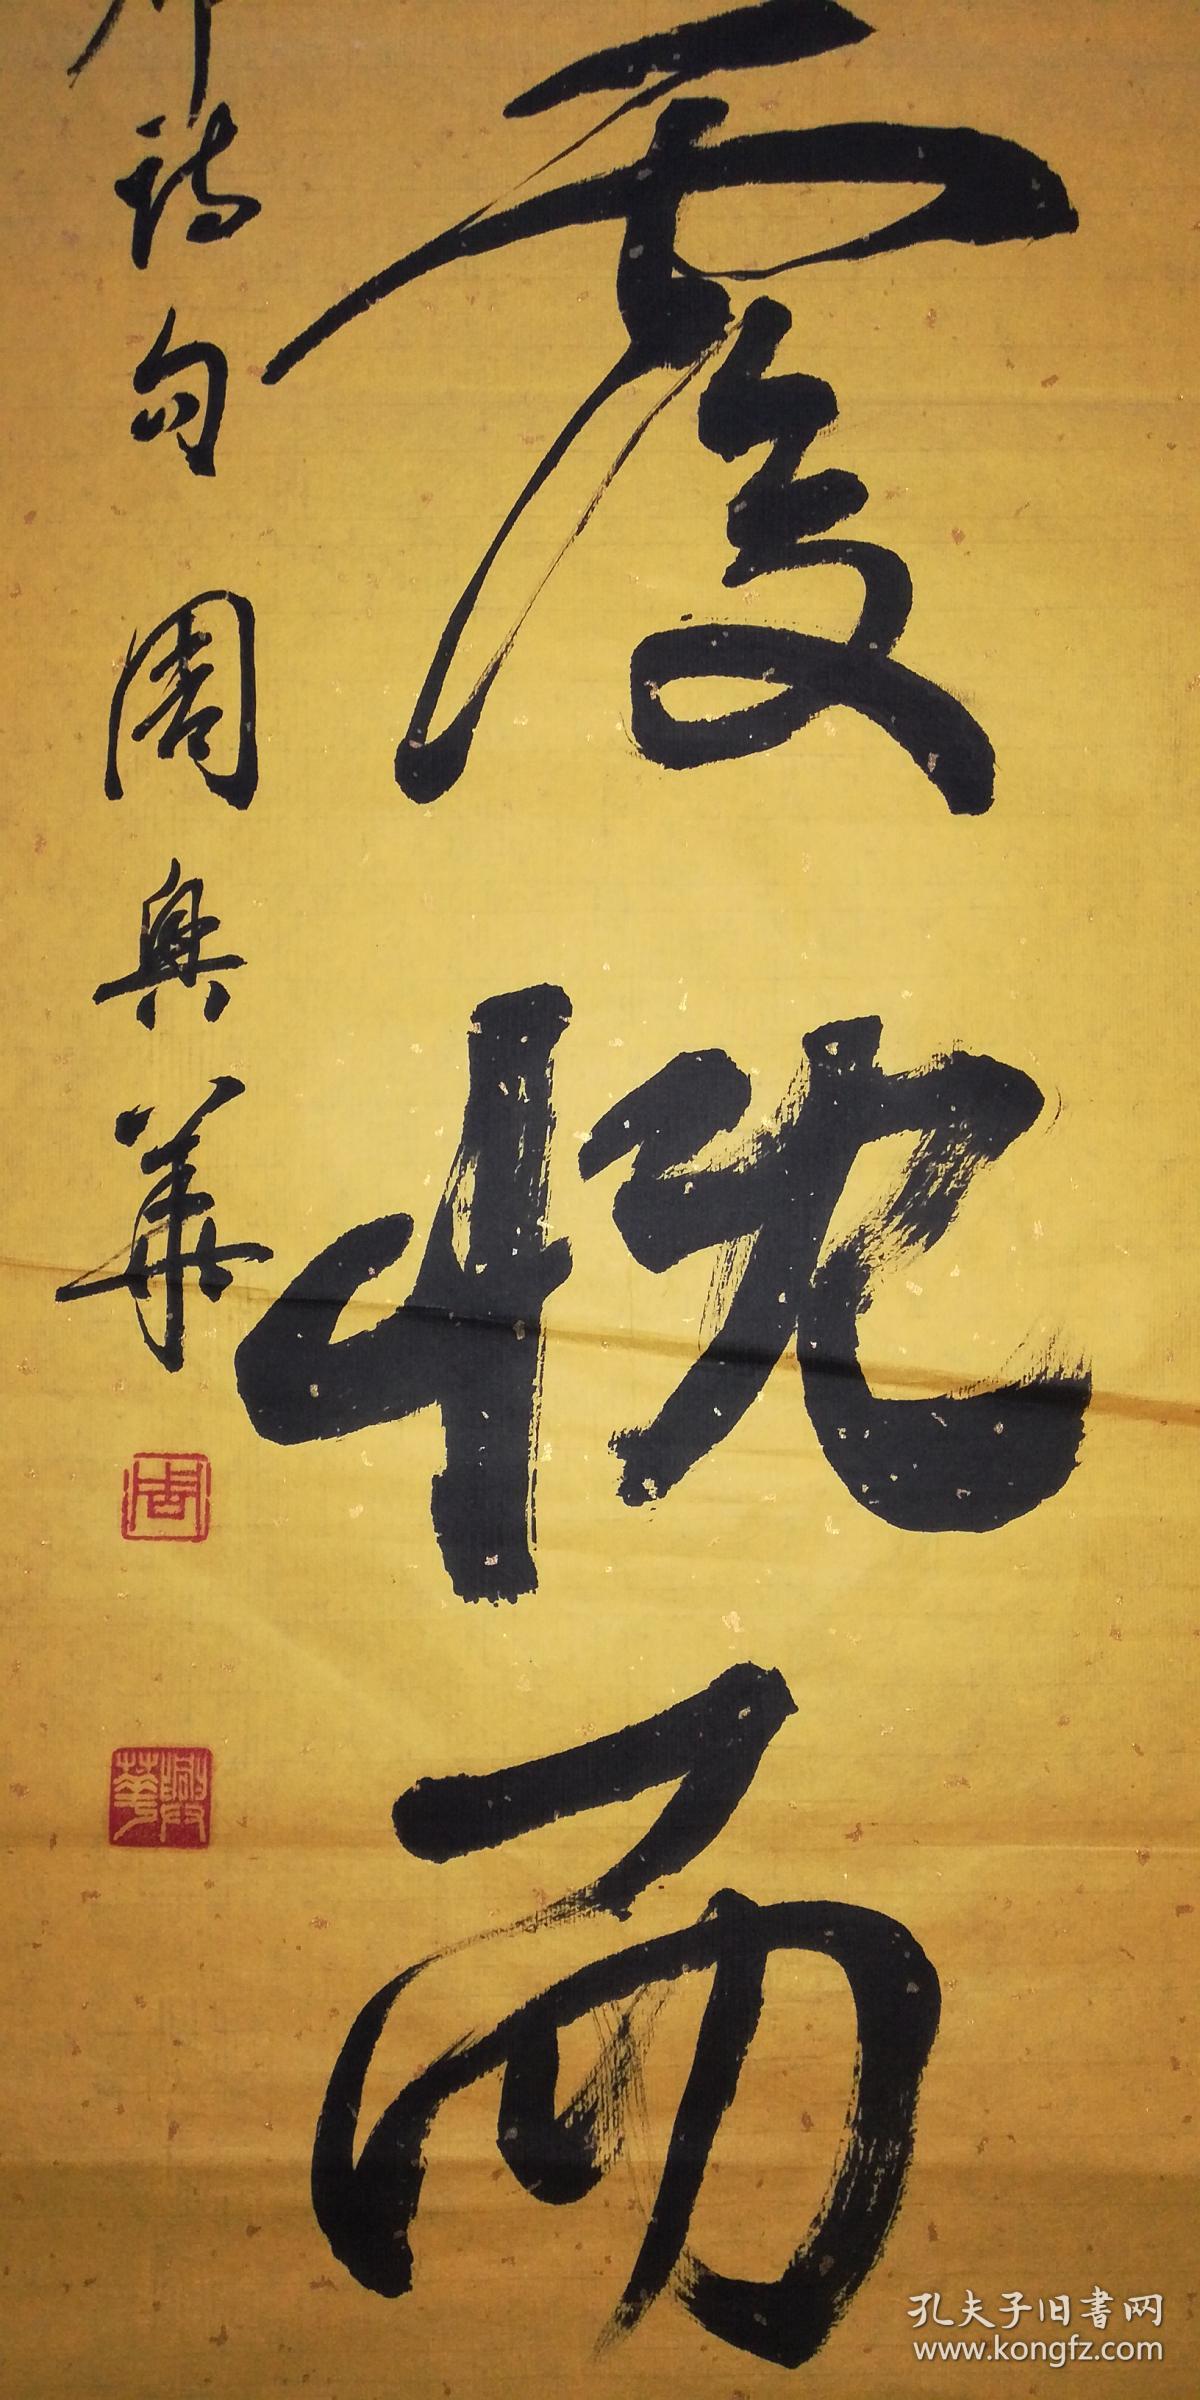 忱而
诗句 周興華
周
興華
孔夫子旧書网
www.kongfz.com